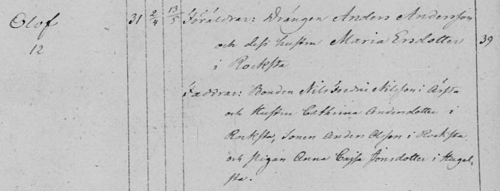 Olof 31 2/4 13/5 Föräldrar: Drängen Anders Andersson
12 och dess hustru Maria Ersdotter 39
i Rocksta
Faddrar: Bonden Nils Fredric Nilsson i Årsta
och Hustrun Cathrina Andersdotter i
Rocksta, Sonen Anders Olsson i Rocksta
och pigan Anna Cajsa Jonsdotter i Hagel-
sta.